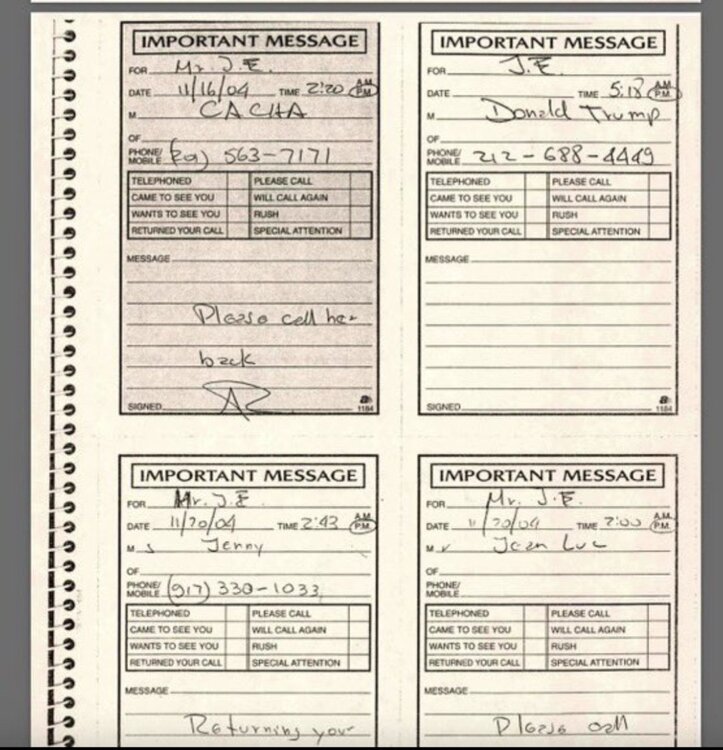 IMPORTANT MESSAGE
FOR Mr. J.E.
DATE 11/16/04 TIME 2:20 A.M. P.M.
M CACHA
OF
PHONE/
MOBILE 563-7171
TELEPHONED PLEASE CALL
CAME TO SEE YOU WILL CALL AGAIN
WANTS TO SEE YOU RUSH
RETURNED YOUR CALL SPECIAL ATTENTION
MESSAGE
Please call her
back
SIGNED
1184
IMPORTANT MESSAGE
FOR J.E.
DATE TIME 5:18 A.M. P.M.
M Donald Trump
OF
PHONE/
MOBILE 212-688-4449
TELEPHONED PLEASE CALL
CAME TO SEE YOU WILL CALL AGAIN
WANTS TO SEE YOU RUSH
RETURNED YOUR CALL SPECIAL ATTENTION
MESSAGE
SIGNED
1184
IMPORTANT MESSAGE
FOR Mr. J.E
DATE 11/20/04 TIME 2:43 A.M. P.M.
M s Jenny
OF
PHONE/
MOBILE (917) 330-1033
TELEPHONED PLEASE CALL
CAME TO SEE YOU WILL CALL AGAIN
WANTS TO SEE YOU RUSH
RETURNED YOUR CALL SPECIAL ATTENTION
MESSAGE
Returning your
IMPORTANT MESSAGE
FOR Mr. J.E.
DATE 11/20/04 TIME 2:00 A.M. P.M.
M r Jean Luc
OF
PHONE/
MOBILE
TELEPHONED PLEASE CALL
CAME TO SEE YOU WILL CALL AGAIN
WANTS TO SEE YOU RUSH
RETURNED YOUR CALL SPECIAL ATTENTION
MESSAGE
Please call